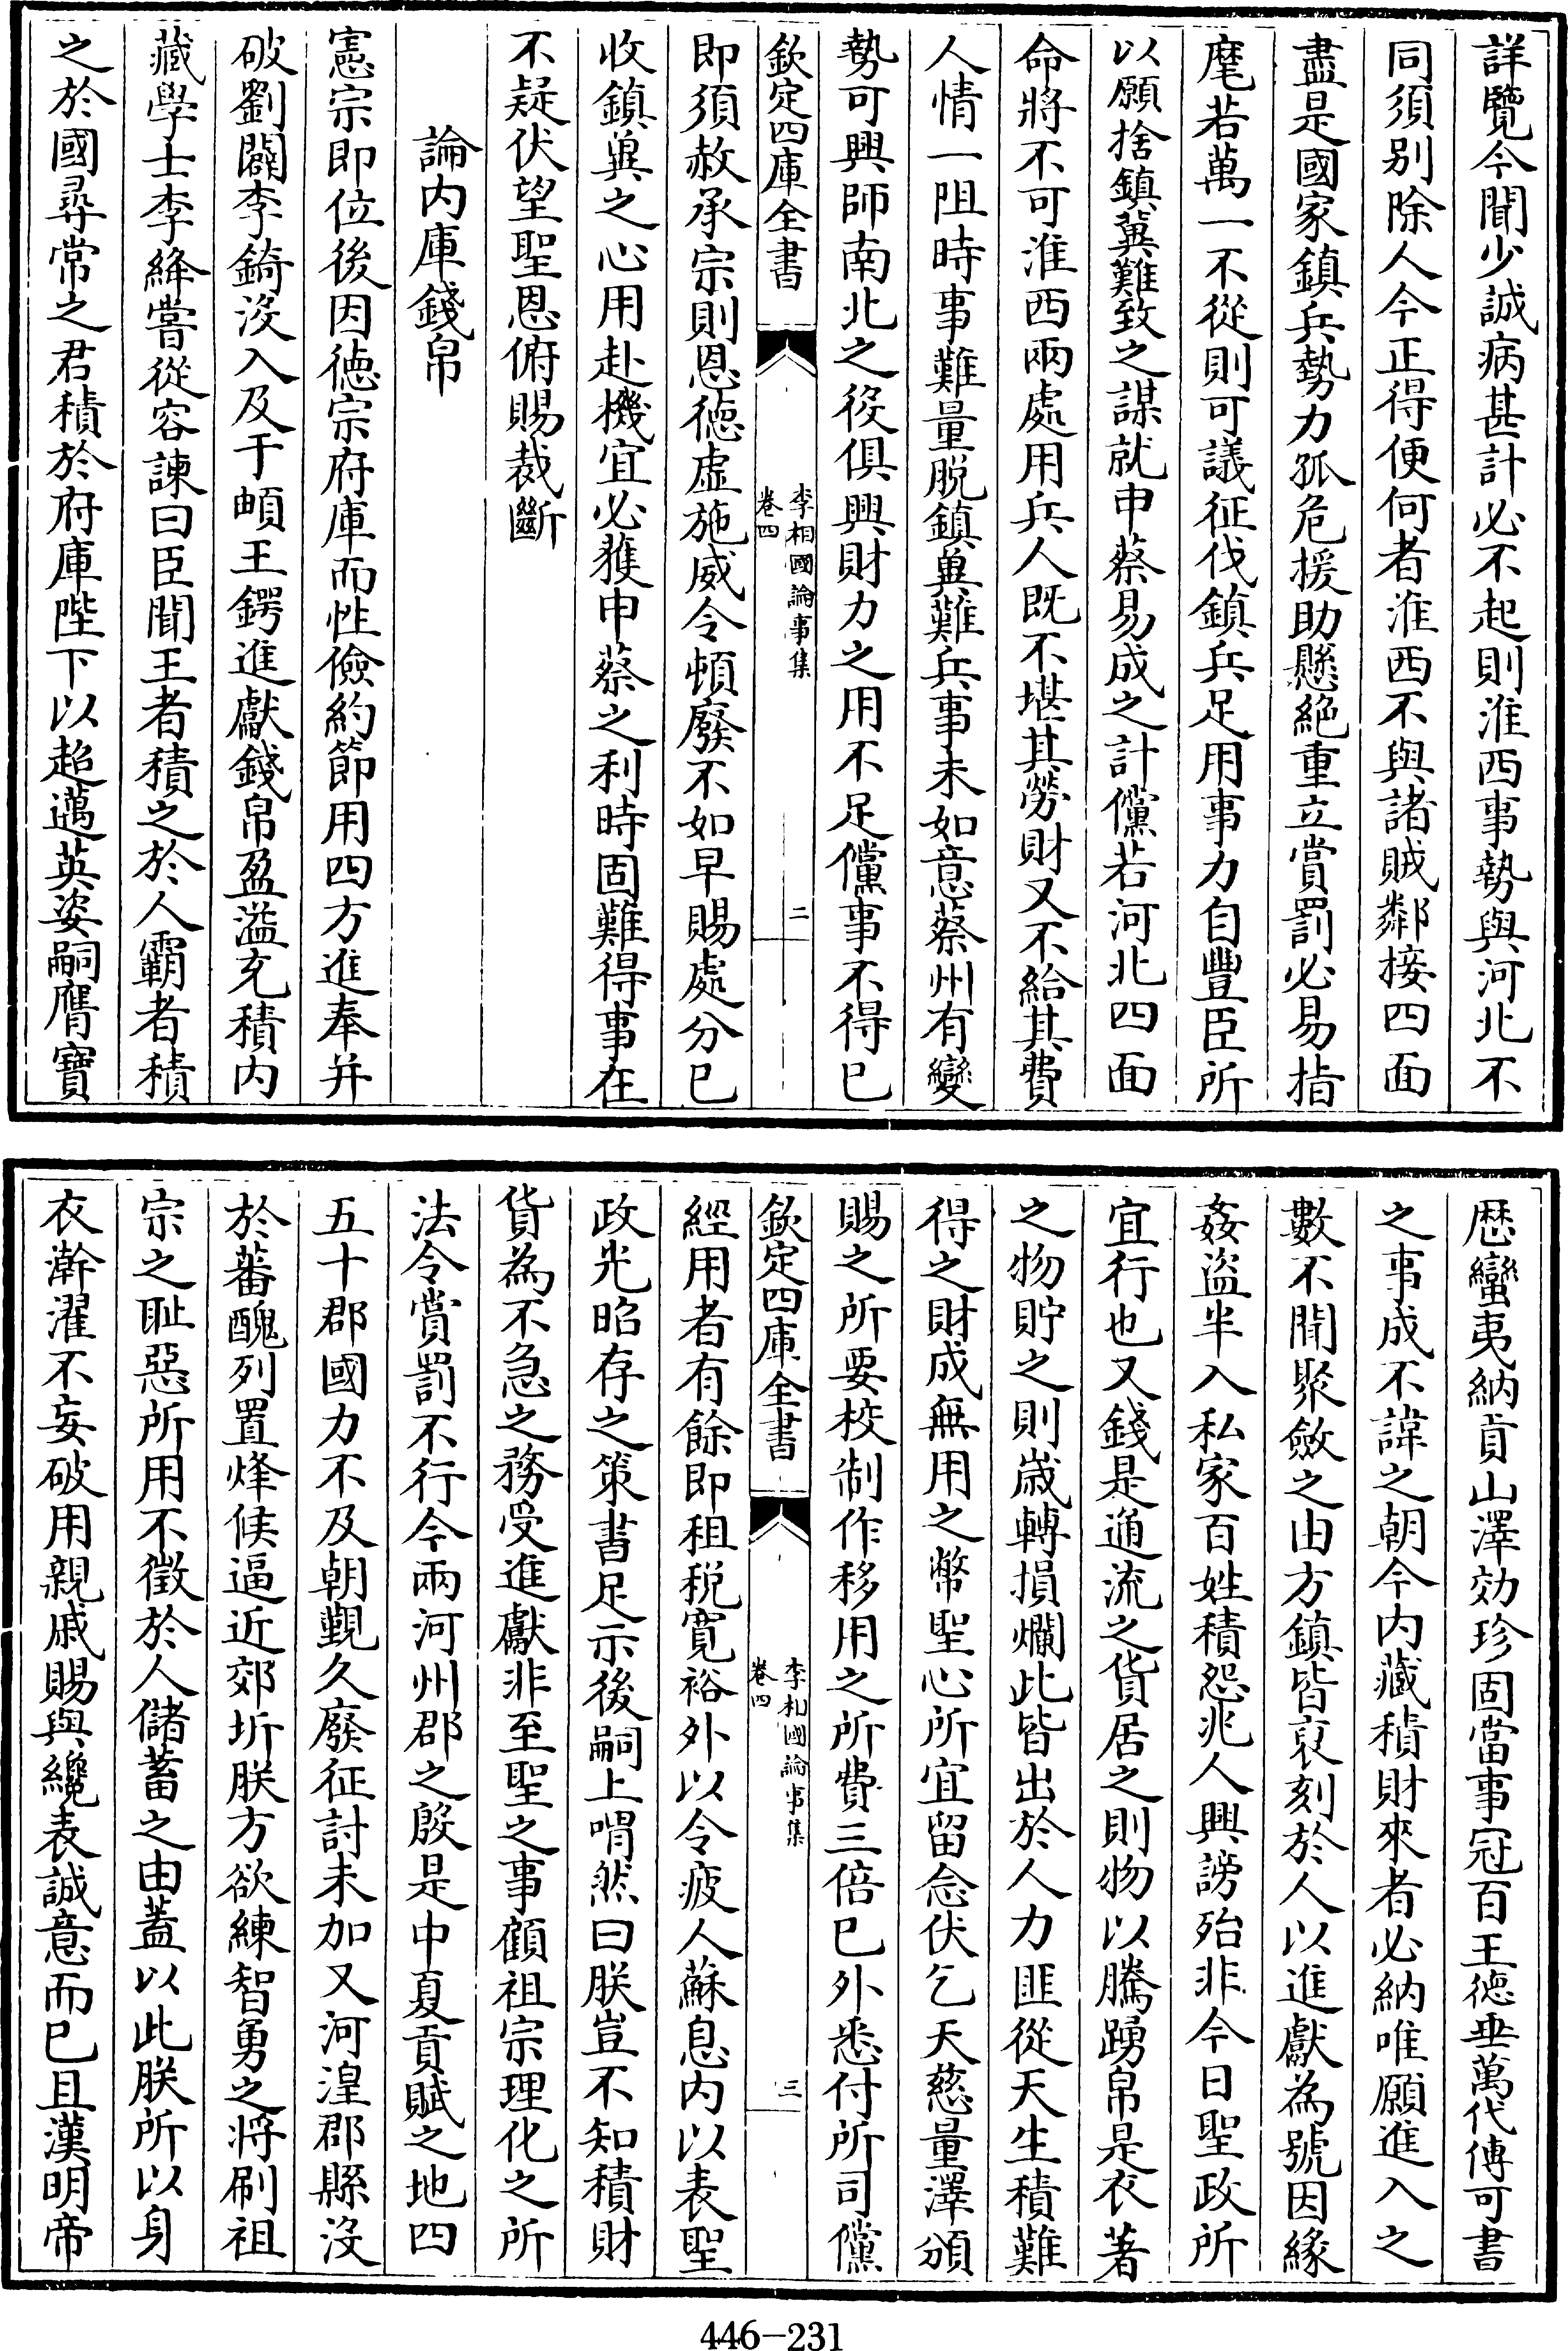 詳覽今聞少誠病甚計必不起則淮西事勢與河北不
同須别除人今正得便何者淮西不與諸賊鄰接四面
盡是國家鎮兵勢力孤危援助懸絶重立賞罰必易指
麾若萬一不從則可議征伐鎮兵足用事力自豐臣所
以願捨鎮冀難致之謀就申蔡易成之計儻若河北四面
命將不可淮西兩處用兵人既不堪其勞財又不給其費
人情一阻時事難量脱鎮冀難兵事未如意蔡州有變
勢可興師南北之役俱興財力之用不足儻事不得已
欽定四庫全書
李相國論事集
卷四
二
即須赦承宗則恩德虚施威令頓廢不如早賜處分已
收鎮冀之心用赴機宜必獲申蔡之利時固難得事在
不疑伏望聖恩俯賜裁斷
論内庫錢帛
憲宗即位後因德宗府庫而性儉約節用四方進奉并
破劉闢李錡没入及于頔王鍔進獻錢帛盈溢充積内
藏學士李絳嘗從容諫曰臣聞王者積之於人霸者積
之於國尋常之君積於府庫陛下以超邁英姿嗣膺寶
厯蠻夷納貢山澤効珍固當事冠百王德垂萬代傳可書
之事成不諱之朝今内藏積財來者必納唯願進入之
數不聞聚斂之由方鎮皆裒刻於人以進獻為號因緣
姦盜半入私家百姓積怨兆人興謗殆非今日聖政所
宜行也又錢是通流之貨居之則物以騰踴帛是衣著
之物貯之則嵗轉損爛此皆出於人力匪從天生積難
得之財成無用之幣聖心所宜留念伏乞天慈量澤頒
賜之所要校制作移用之所費三倍已外悉付所司儻
欽定四庫全書
李相國論事集
卷四
三
經用者有餘即租税寛裕外以令疲人蘇息内以表聖
政光昭存之策書足示後嗣上喟然曰朕豈不知積財
貨為不急之務受進獻非至聖之事顧祖宗理化之所
法令賞罰不行今兩河州郡之殷是中夏貢賦之地四
五十郡國力不及朝覲久廢征討未加又河湟郡縣没
於蕃醜列置烽候逼近郊圻朕方欲練智勇之將刷祖
宗之恥惡所用不徵於人儲蓄之由蓋以此朕所以身
衣澣濯不妄破用親戚賜與纔表誠意而已且漢明帝
446-231